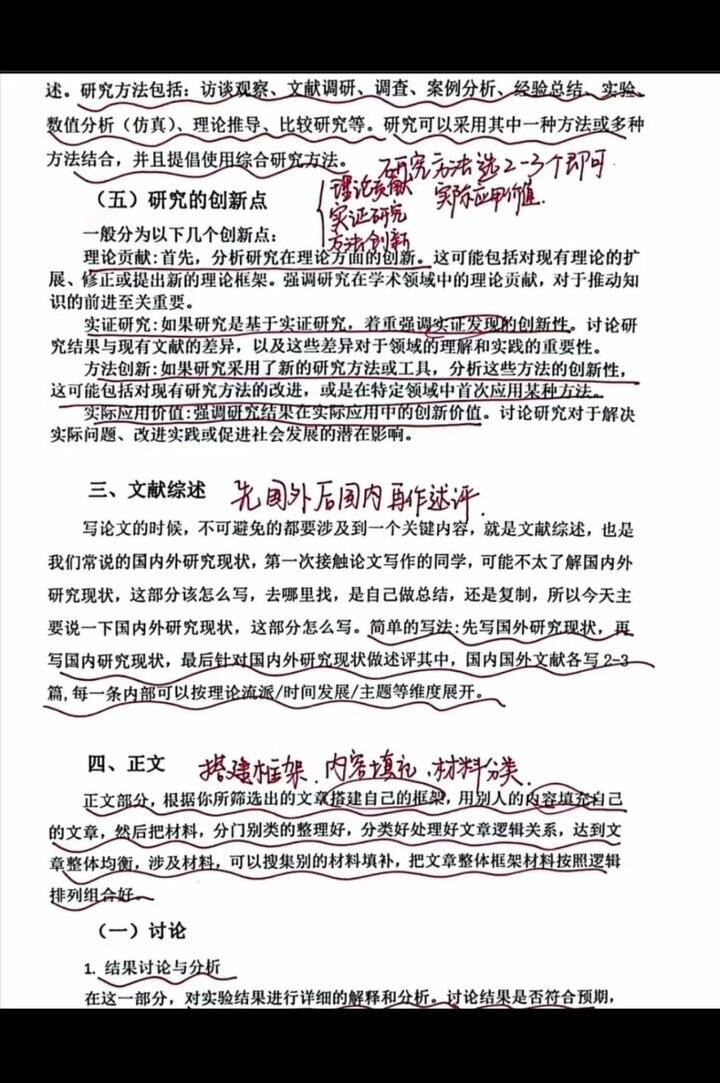 述。研究方法包括：访谈观察、文献调研、调查、案例分析、经验总结、实验、
数值分析（仿真）、理论推导、比较研究等。研究可以采用其中一种方法或多种
方法结合，并且提倡使用综合研究方法。
研究方法选2-3个即可
（五）研究的创新点
理论贡献
实际应用价值.
实证研究
方法创新
一般分为以下几个创新点：
理论贡献:首先，分析研究在理论方面的创新。这可能包括对现有理论的扩
展、修正或提出新的理论框架。强调研究在学术领域中的理论贡献，对于推动知
识的前进至关重要。
实证研究:如果研究是基于实证研究，着重强调实证发现的创新性。讨论研
究结果与现有文献的差异，以及这些差异对于领域的理解和实践的重要性。
方法创新:如果研究采用了新的研究方法或工具，分析这些方法的创新性，
这可能包括对现有研究方法的改进，或是在特定领域中首次应用某种方法。
实际应用价值:强调研究结果在实际应用中的创新价值。讨论研究对于解决
实际问题、改进实践或促进社会发展的潜在影响。
三、文献综述
先国外后国内再作述评.
写论文的时候，不可避免的都要涉及到一个关键内容，就是文献综述，也是
我们常说的国内外研究现状，第一次接触论文写作的同学，可能不太了解国内外
研究现状，这部分该怎么写，去哪里找，是自己做总结，还是复制，所以今天主
要说一下国内外研究现状，这部分怎么写。简单的写法:先写国外研究现状，再
写国内研究现状，最后针对国内外研究现状做述评其中，国内国外文献各写2-3
篇,每一条内部可以按理论流派/时间发展/主题等维度展开。
四、正文
搭建框架、内容填充、材料分类.
正文部分，根据你所筛选出的文章搭建自己的框架，用别人的内容填充自己
的文章，然后把材料，分门别类的整理好，分类好处理好文章逻辑关系，达到文
章整体均衡，涉及材料，可以搜集别的材料填补，把文章整体框架材料按照逻辑
排列组合好。
（一）讨论
1. 结果讨论与分析
在这一部分，对实验结果进行详细的解释和分析。讨论结果是否符合预期，